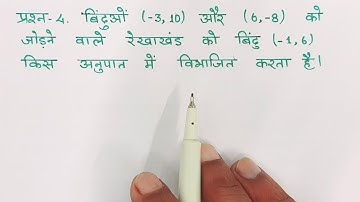 प्रश्न-4. बिंदुओं (-3, 10) और (6,-8) को
जोड़ने वाले रेखाखंड को बिंदु (-1,6)
किस अनुपात में विभाजित करता है।